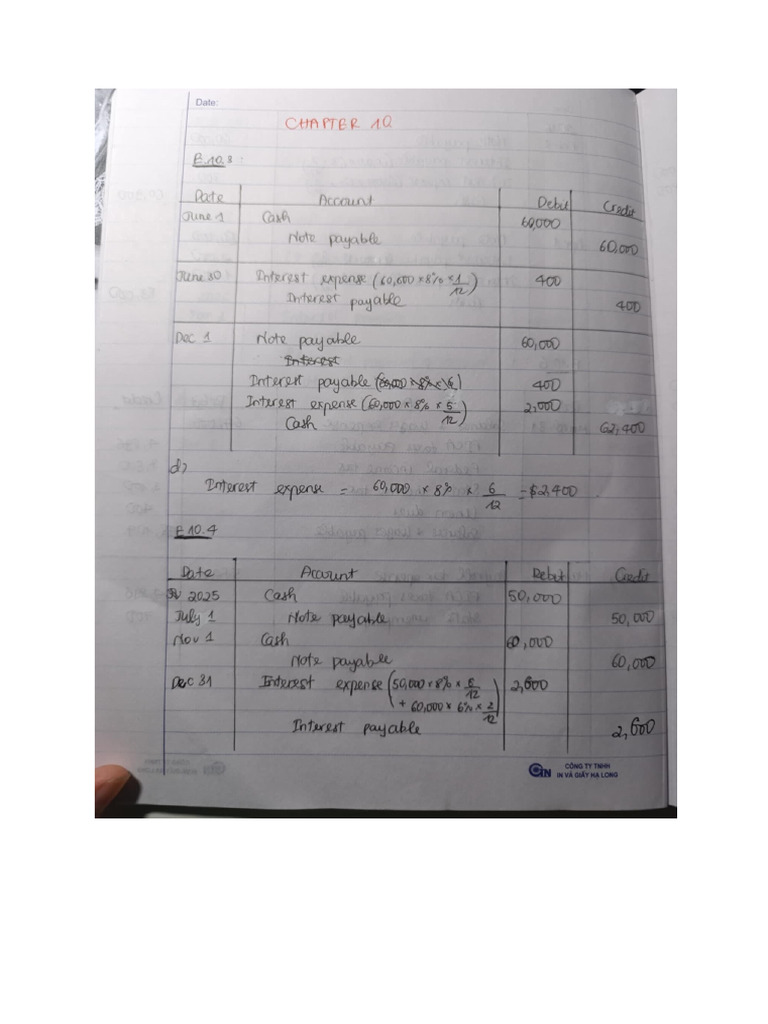 Date:
CHAPTER 10
E.10.3:
Date Account Debit Credit
June 1 Cash 60,000
Note payable 60,000
June 30 Interest expense (60,000 × 8% × 1/12) 400
Interest payable 400
Dec 1 Note payable 60,000
Interest
Interest payable 400
Interest expense (60,000 × 8% × 5/12) 2,000
Cash 62,400
d)
Interest expense = 60,000 × 8% × 6/12 = $2,400
E 10.4
Date Account Debit Credit
2025 Cash 50,000
July 1 Note payable 50,000
Nov 1 Cash 60,000
Note payable 60,000
Dec 31 Interest expense (50,000 × 8% × 6/12 2,600
+ 60,000 × 6% × 2/12)
Interest payable 2,600
CÔNG TY TNHH
IN VÀ GIẤY HẠ LONG